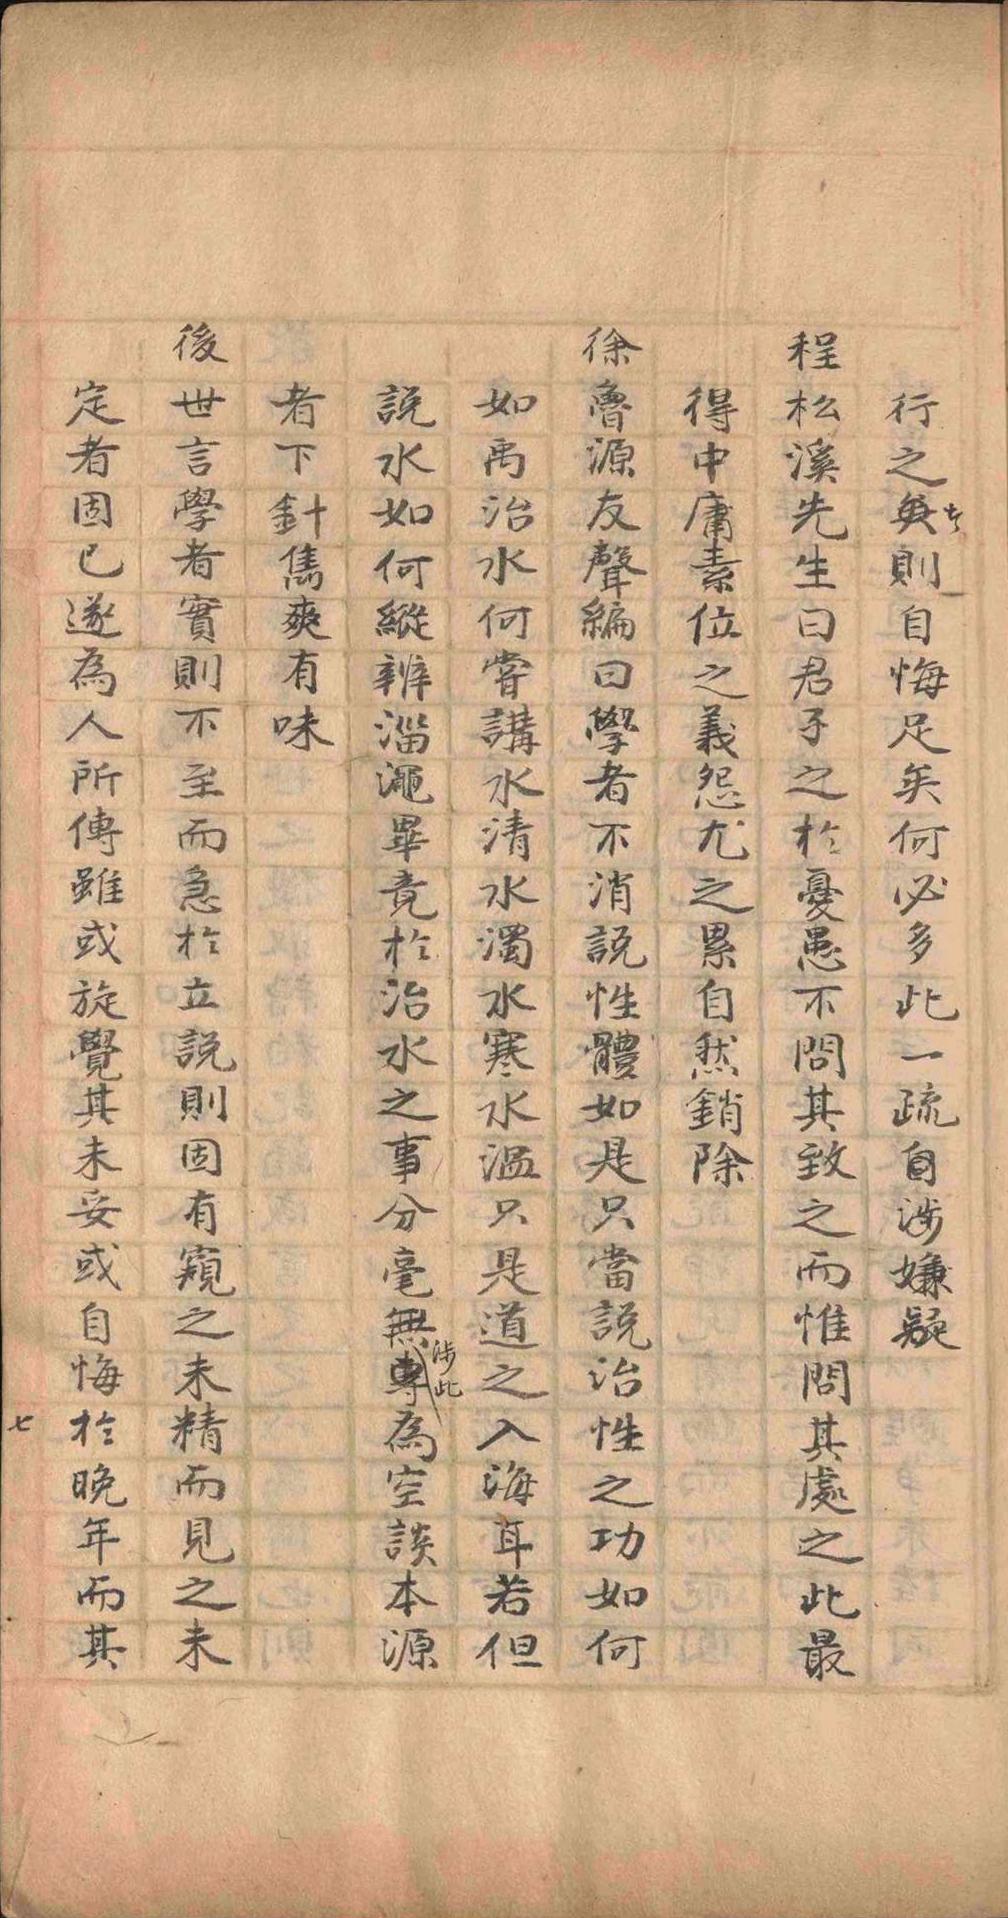 行之與則自悔足矣何必多此一疏自涉嫌疑
程松溪先生曰君子之於憂患不問其致之而惟問其處之此最
得中庸素位之義怨尤之累自然銷除
徐魯源友聲編曰學者不消說性體如是只當說治性之功如何
如禹治水何嘗講水清水濁水寒水溫只是道之入海耳若但
說水如何縱辨淄澠畢竟於治水之事分毫無專為空談本源
涉此
者下針雋爽有味
後世言學者實則不至而急於立說則固有窺之未精而見之未
定者固已遂為人所傳雖或旋覺其未妥或自悔於晚年而其
七